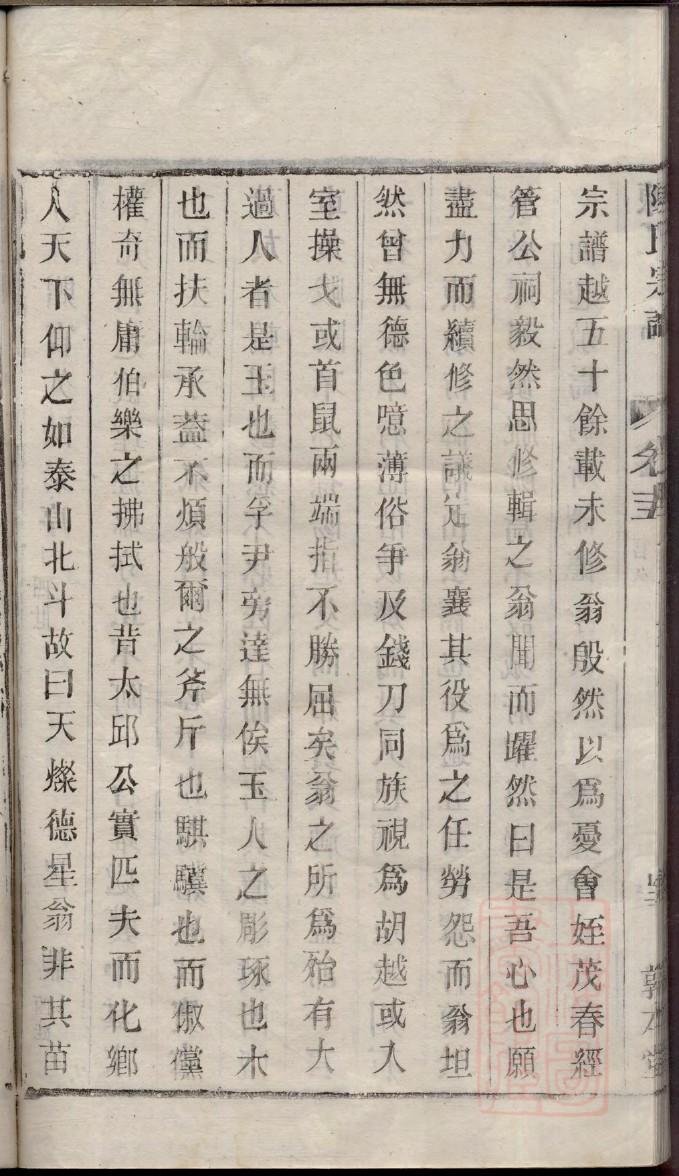 陳氏宗譜 卷五 敦本堂
宗譜越五十餘載未修翁殷然以爲憂會姪茂春經
管公祠毅然思修輯之翁聞而躍然曰是吾心也願
盡力而續修之議定翁襄其役爲之任勞怨而翁坦
然曾無德色噫薄俗爭及錢刀同族視爲胡越或入
室操戈或首鼠兩端指不勝屈矣翁之所爲殆有大
過人者是玉也而孚尹旁達無俟玉人之彫琢也木
也而扶輪承蓋不煩般爾之斧斤也騏驥也而俶儻
權奇無庸伯樂之拂拭也昔太邱公實匹夫而化鄉
人天下仰之如泰山北斗故曰天燦德星翁非其苗